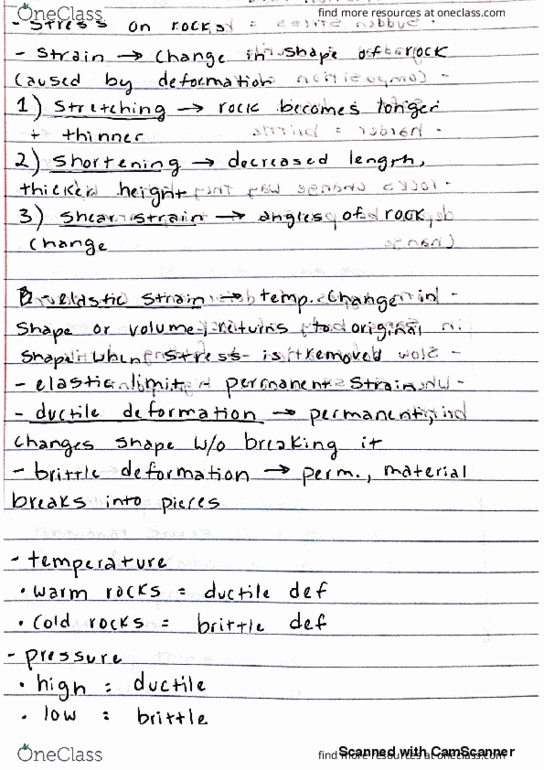 OneClass
find more resources at oneclass.com
- Stress on rocks
- Strain → Change in shape of rock
caused by deformation
1) Stretching → rock becomes longer
+ thinner
2) Shortening → decreased length,
thicker height
3) Shear strain → angles of rock
change
- elastic strain → temp. change in
shape or volume, returns to original
shape when stress is removed
- elastic limit → permanent strain
- ductile deformation → permanent,
changes shape w/o breaking it
- brittle deformation → perm., material
breaks into pieces
- temperature
• warm rocks = ductile def
• cold rocks = brittle def
- pressure
• high = ductile
• low = brittle
OneClass
find more resources at oneclass.com
Scanned with CamScanner